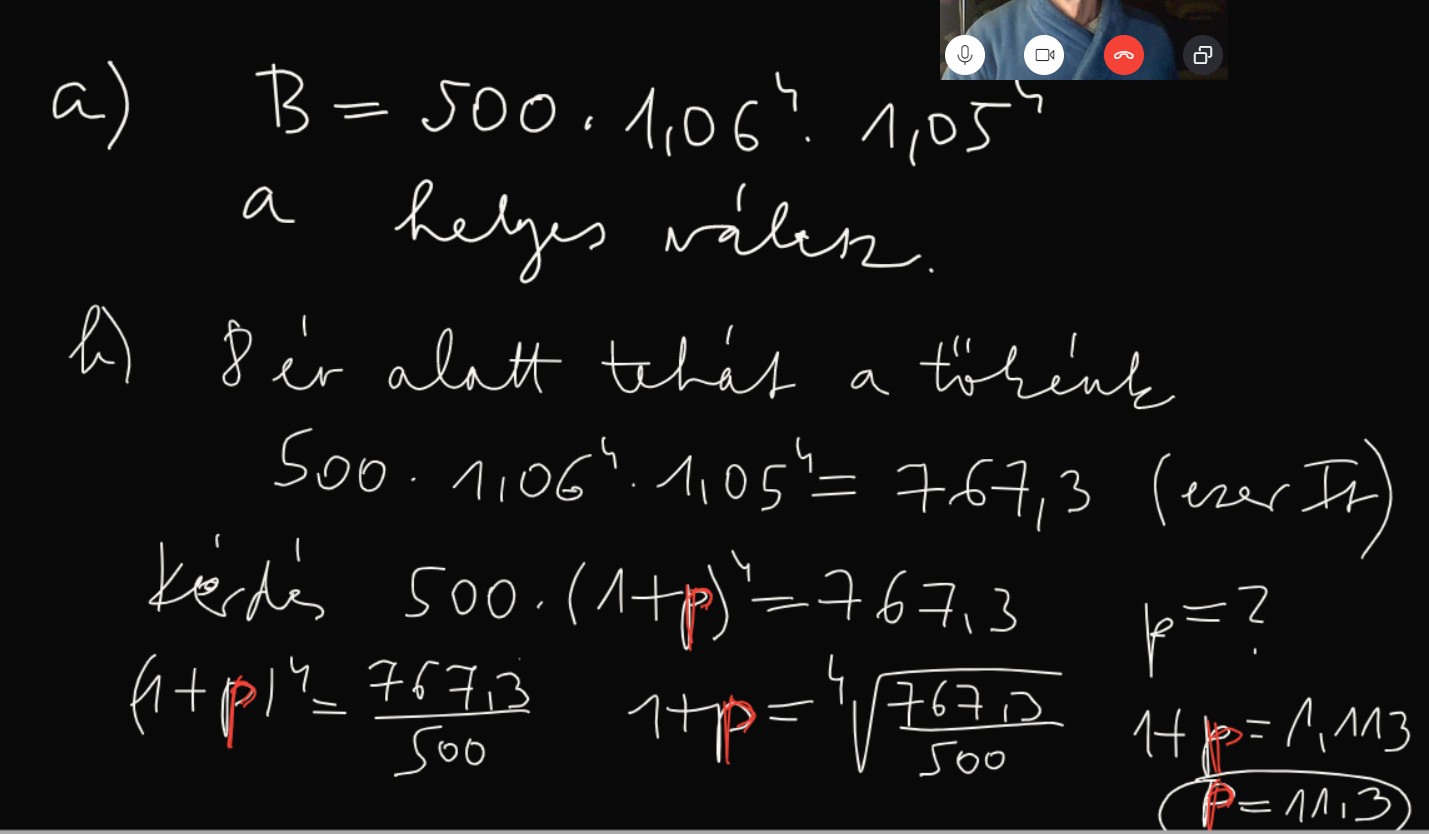 a) B = 500 · 1,06⁴ · 1,05⁴
a helyes válasz.
b) 8 év alatt tehát a tőkénk
500 · 1,06⁴ · 1,05⁴ = 767,3 (ezer Ft)
Kérdés 500 · (1+p)⁴ = 767,3 p = ?
(1+p)⁴ = 767,3/500 1+p = ⁴√(767,3/500) 1+p = 1,113
p = 11,3